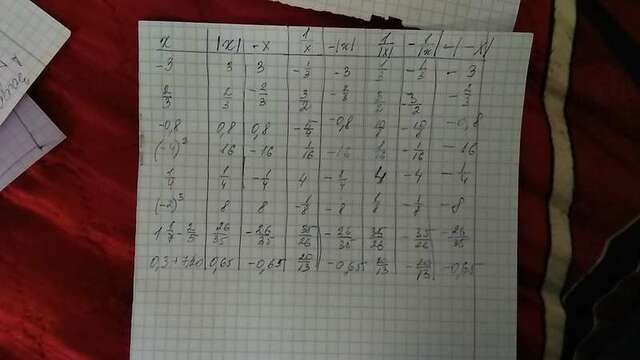 x | |x| | -x | 1/x | -|x| | 1/|x| | -1/|x| | -|-x|
-3 | 3 | 3 | -1/3 | -3 | 1/3 | -1/3 | -3
2/3 | 2/3 | -2/3 | 3/2 | -2/3 | 3/2 | -3/2 | -2/3
-0,8 | 0,8 | 0,8 | -5/4 | -0,8 | 10/8 | -10/8 | -0,8
(-4)² | 16 | -16 | 1/16 | -16 | 1/16 | -1/16 | -16
1/4 | 1/4 | -1/4 | 4 | -1/4 | 4 | -4 | -1/4
(-2)³ | 8 | 8 | -1/8 | -8 | 1/8 | -1/8 | -8
26/35 | -26/35 | 35/26 | -26/35 | 35/26 | -35/26 | -26/35
0,65 | -0,65 | 20/13 | -0,65 | 20/13 | -20/13 | -0,65